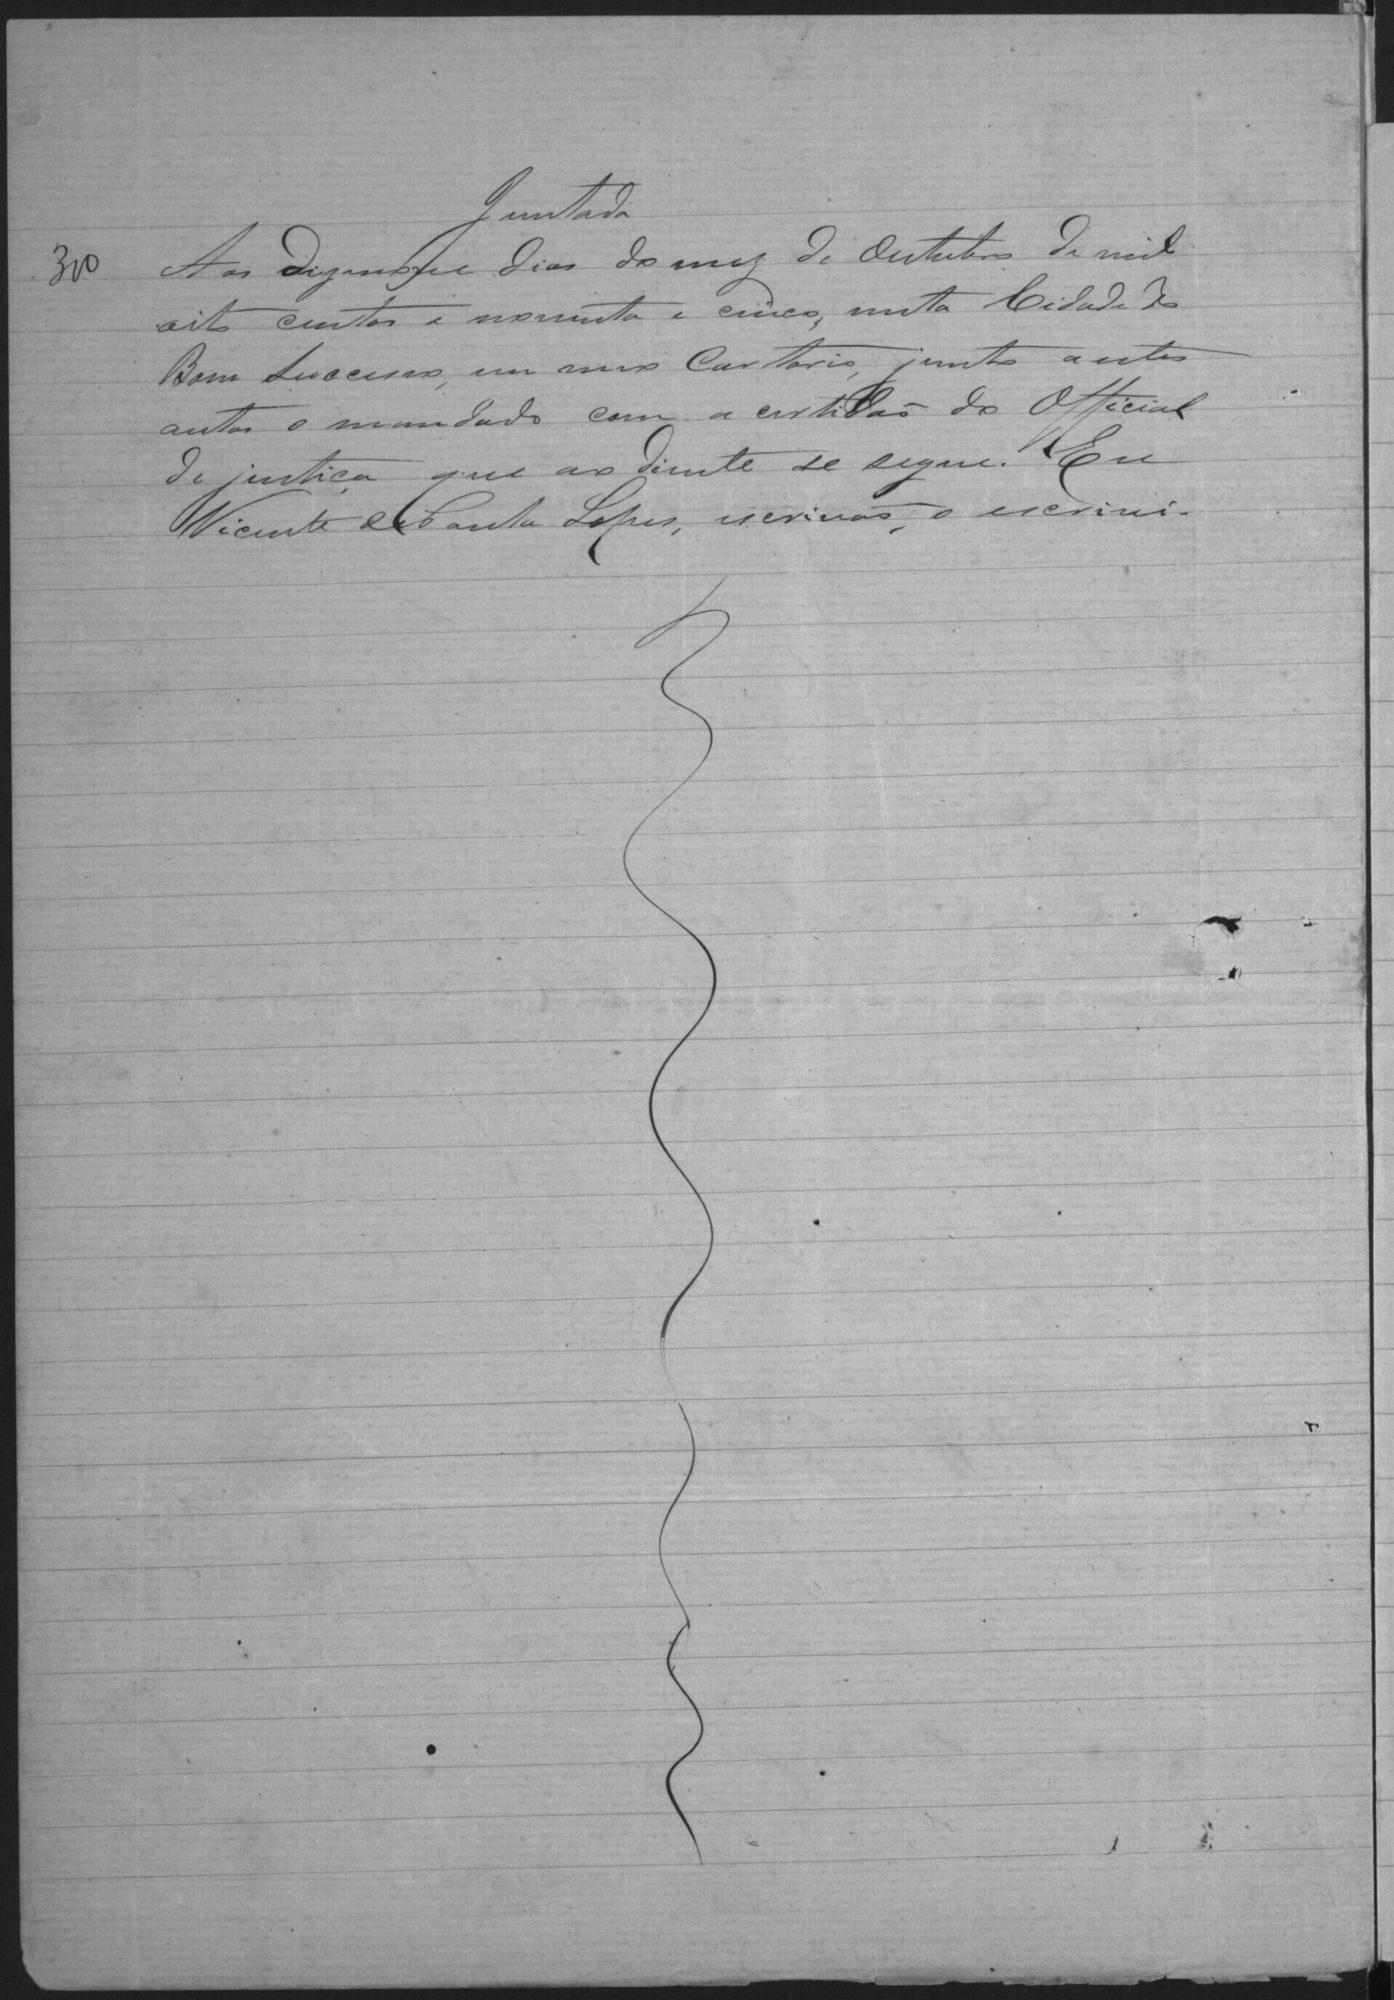 Juntada
300 Aos dezenove dias do mez de Outubro de mil
oito centos e noventa e cinco, nesta Cidade do
Bom Successo, em meu Cartorio, junto a estes
autos o mandado com a certidão do Official
de justiça que ao diante se segue. Eu
Vicente de Paula Lopes, escrivão, o escrivi.